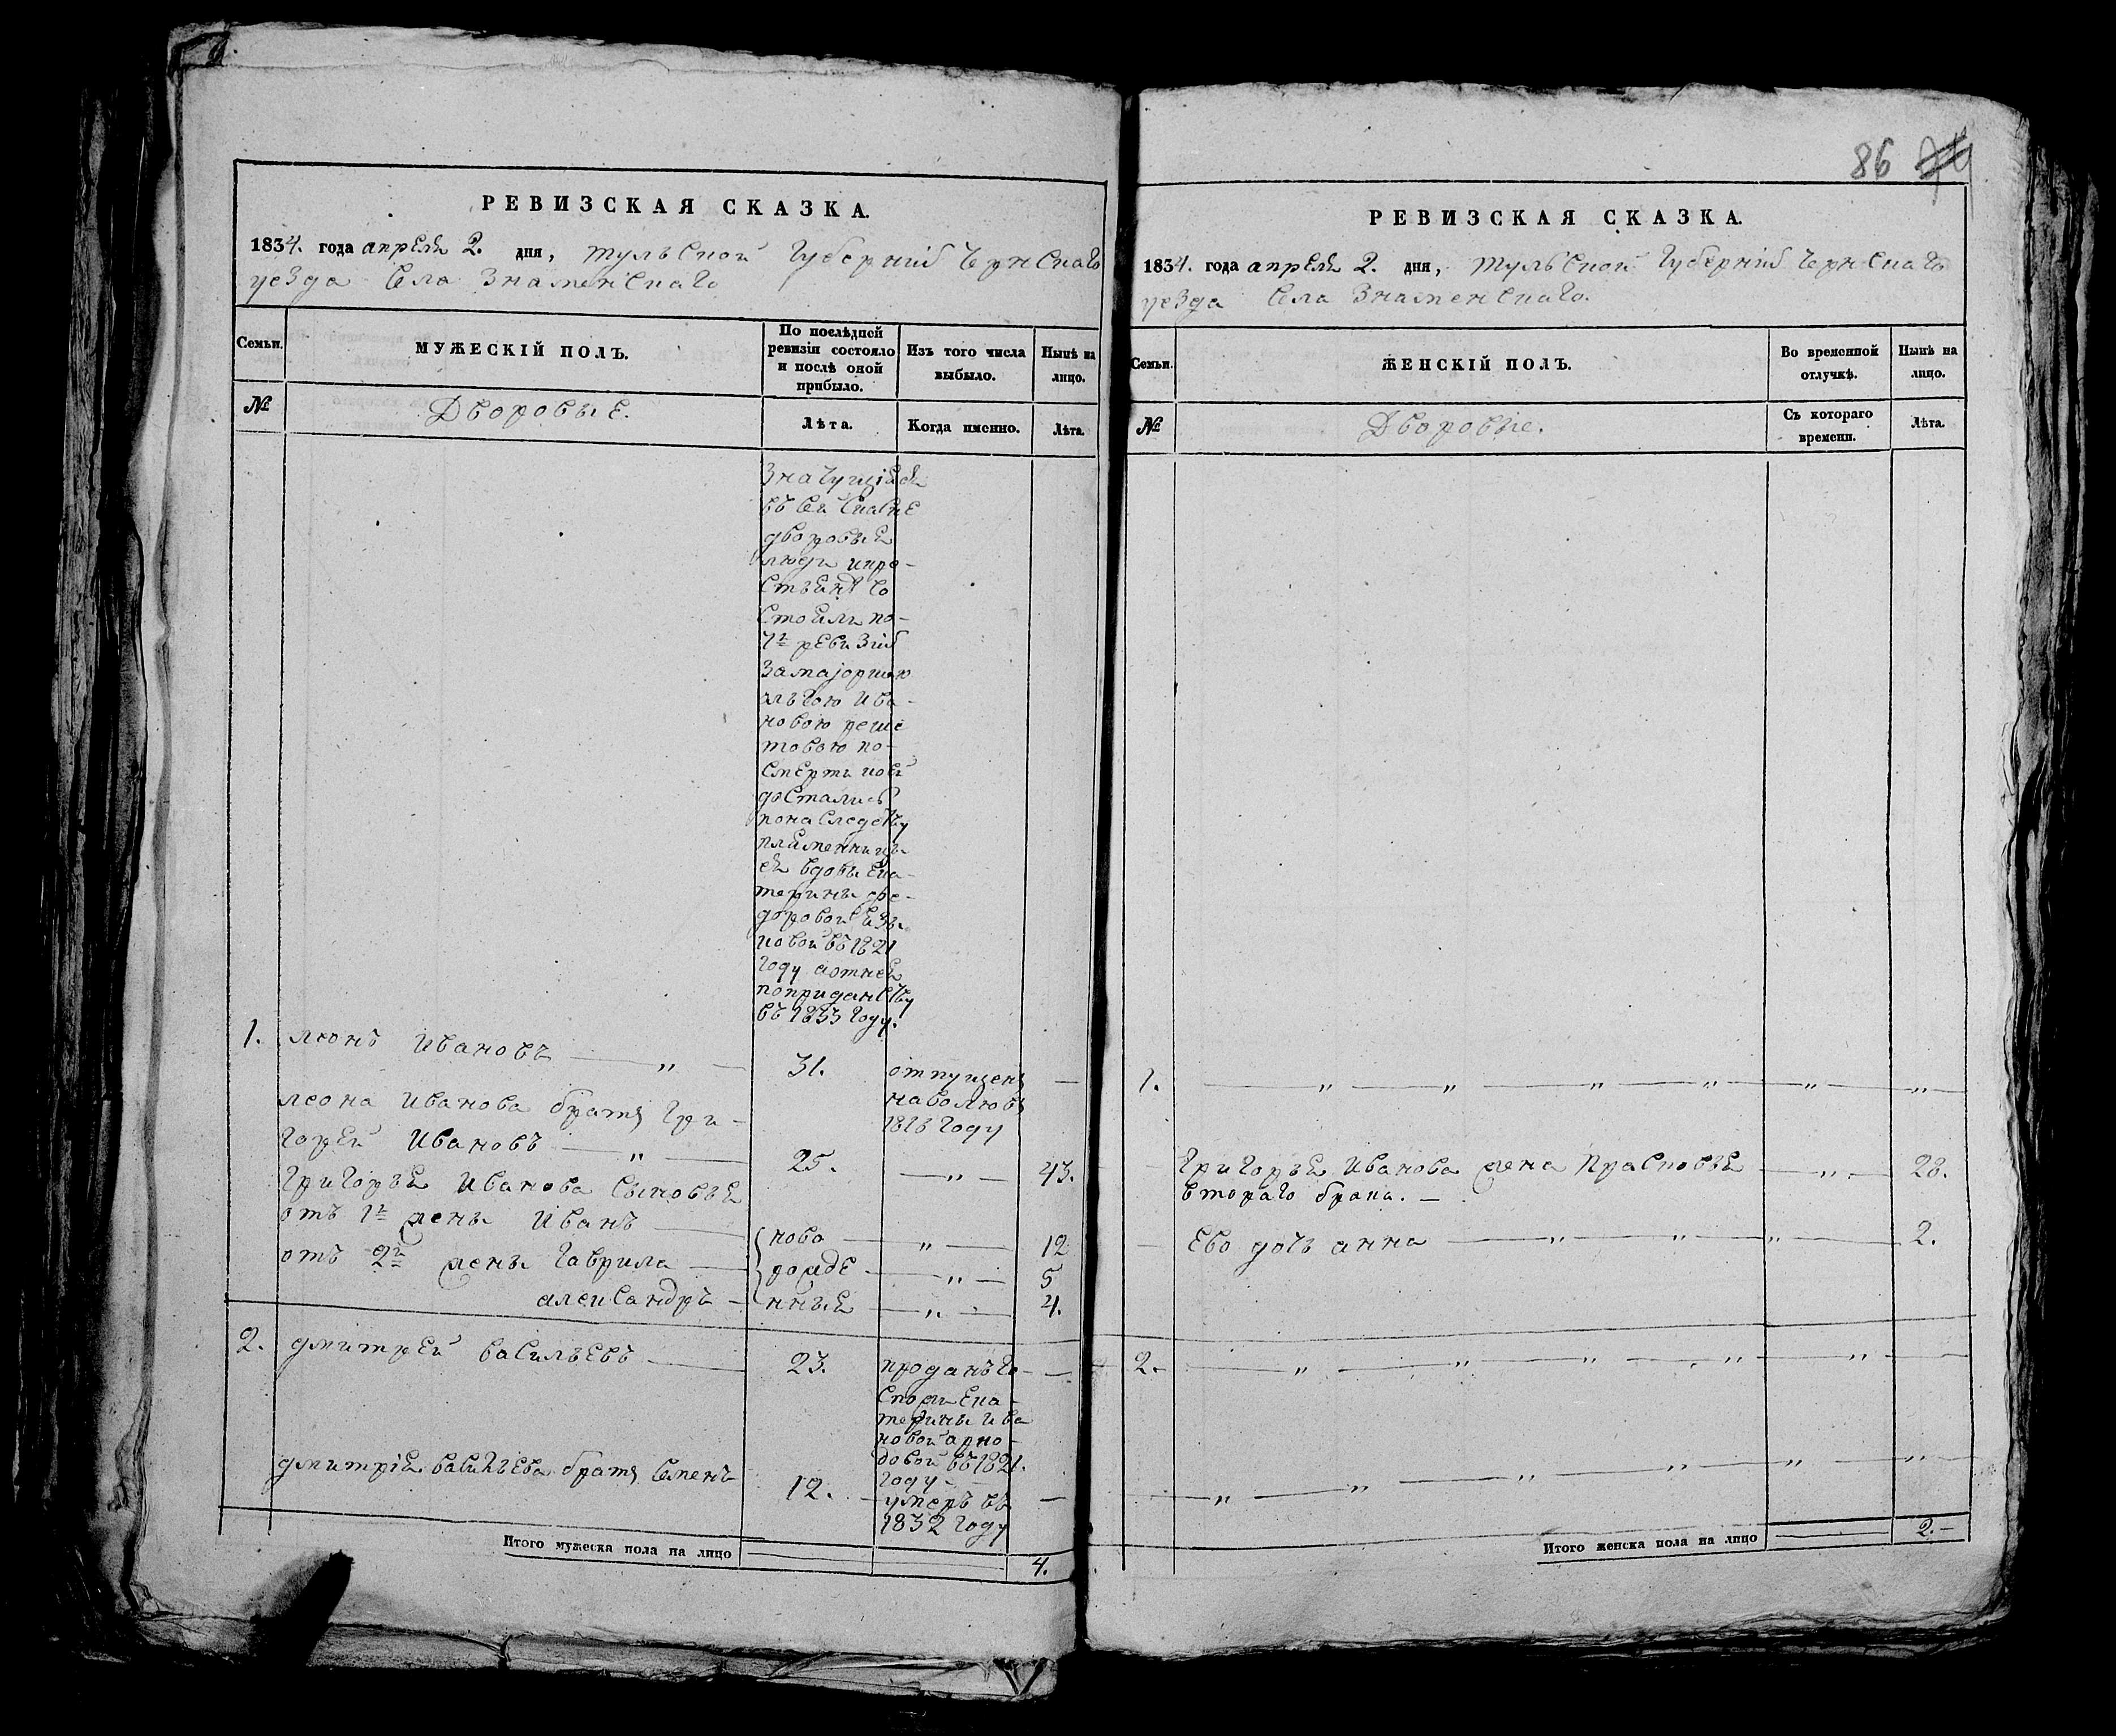 86
РЕВИЗСКАЯ СКАЗКА.
1834. года апреля 2. дня, тульской губерніи чернскаго
уезда села Знаменскаго
Семьи.
МУЖЕСКІЙ ПОЛЪ.
По послѣдней
ревизіи состояло
и послѣ оной
прибыло.
Изъ того числа
выбыло.
Нынѣ на
лицо.
№
Дворовые.
Лѣта.
Когда именно.
Лѣта.
Значущіися
въ сей скаске
дворовыя
люди и кре-
стьянѣ со
стояли по-
7й ревизіи
за маіоршею
ольгою ива-
новою реше
товою по-
смерти коей
достались
по наследству
племеннице
ея вдовы ека-
терины фе-
доровой
въ 1821
году а от нея
по приданству
въ 1833 году.
1. леонъ Ивановъ — „ —
31.
отпущенъ
на волю въ
1818 году
—
леона Иванова братъ гри-
горей Ивановъ — „ —
25.
— „ —
43.
григорья Иванова сыновья
отъ 1й жены Иванъ —
ново
— „ —
12
отъ 2й жены гаврила —
рожде
— „ —
5
александръ —
нныя
— „ —
4.
2. дмитрей васильевъ —
23.
проданъ го-
споже ека-
терины ива
новой арно-
довой въ 1821.
году —
—
дмитрія васильева братъ семенъ
12.
умеръ въ
1832 году
—
Итого мужеска пола на лицо
4.
РЕВИЗСКАЯ СКАЗКА.
1834. года апреля 2. дня, тульской губерніи чернскаго
уезда села Знаменскаго.
Семьи.
ЖЕНСКІЙ ПОЛЪ.
Во временной
отлучкѣ.
Нынѣ на
лицо.
№
Дворовые.
Съ котораго
времени.
Лѣта.
1. — „ — „ — „ — „ — „ — „ —
григорья Иванова жена прасковья — „ — 28.
втораго брака. —
Ево дочь анна — „ — „ — „ — 2.
2. — „ — „ — „ — „ — „ —
— „ — „ — „ — „ — „ — „ —
Итого женска пола на лицо
2. —